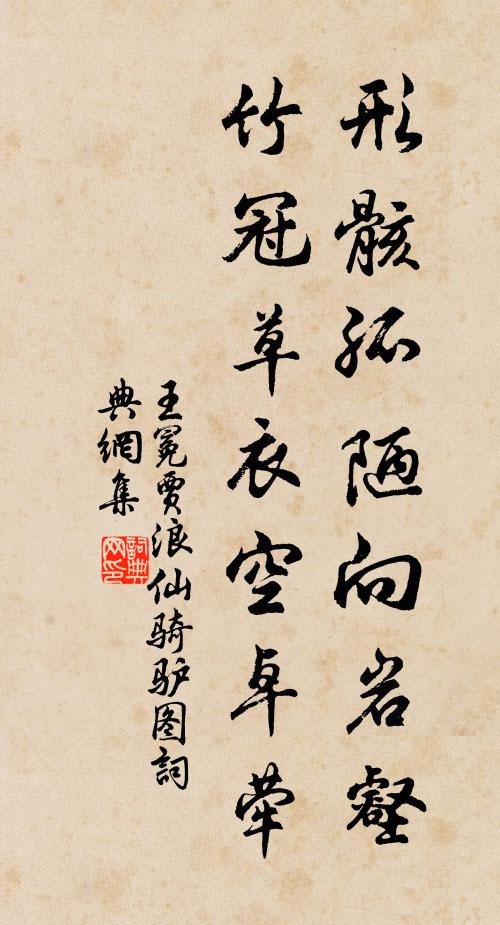 形骸孤陋向岩壑
竹冠草衣空卓荦
王冕贾浪仙骑驴图詞
典網集
詞典网印